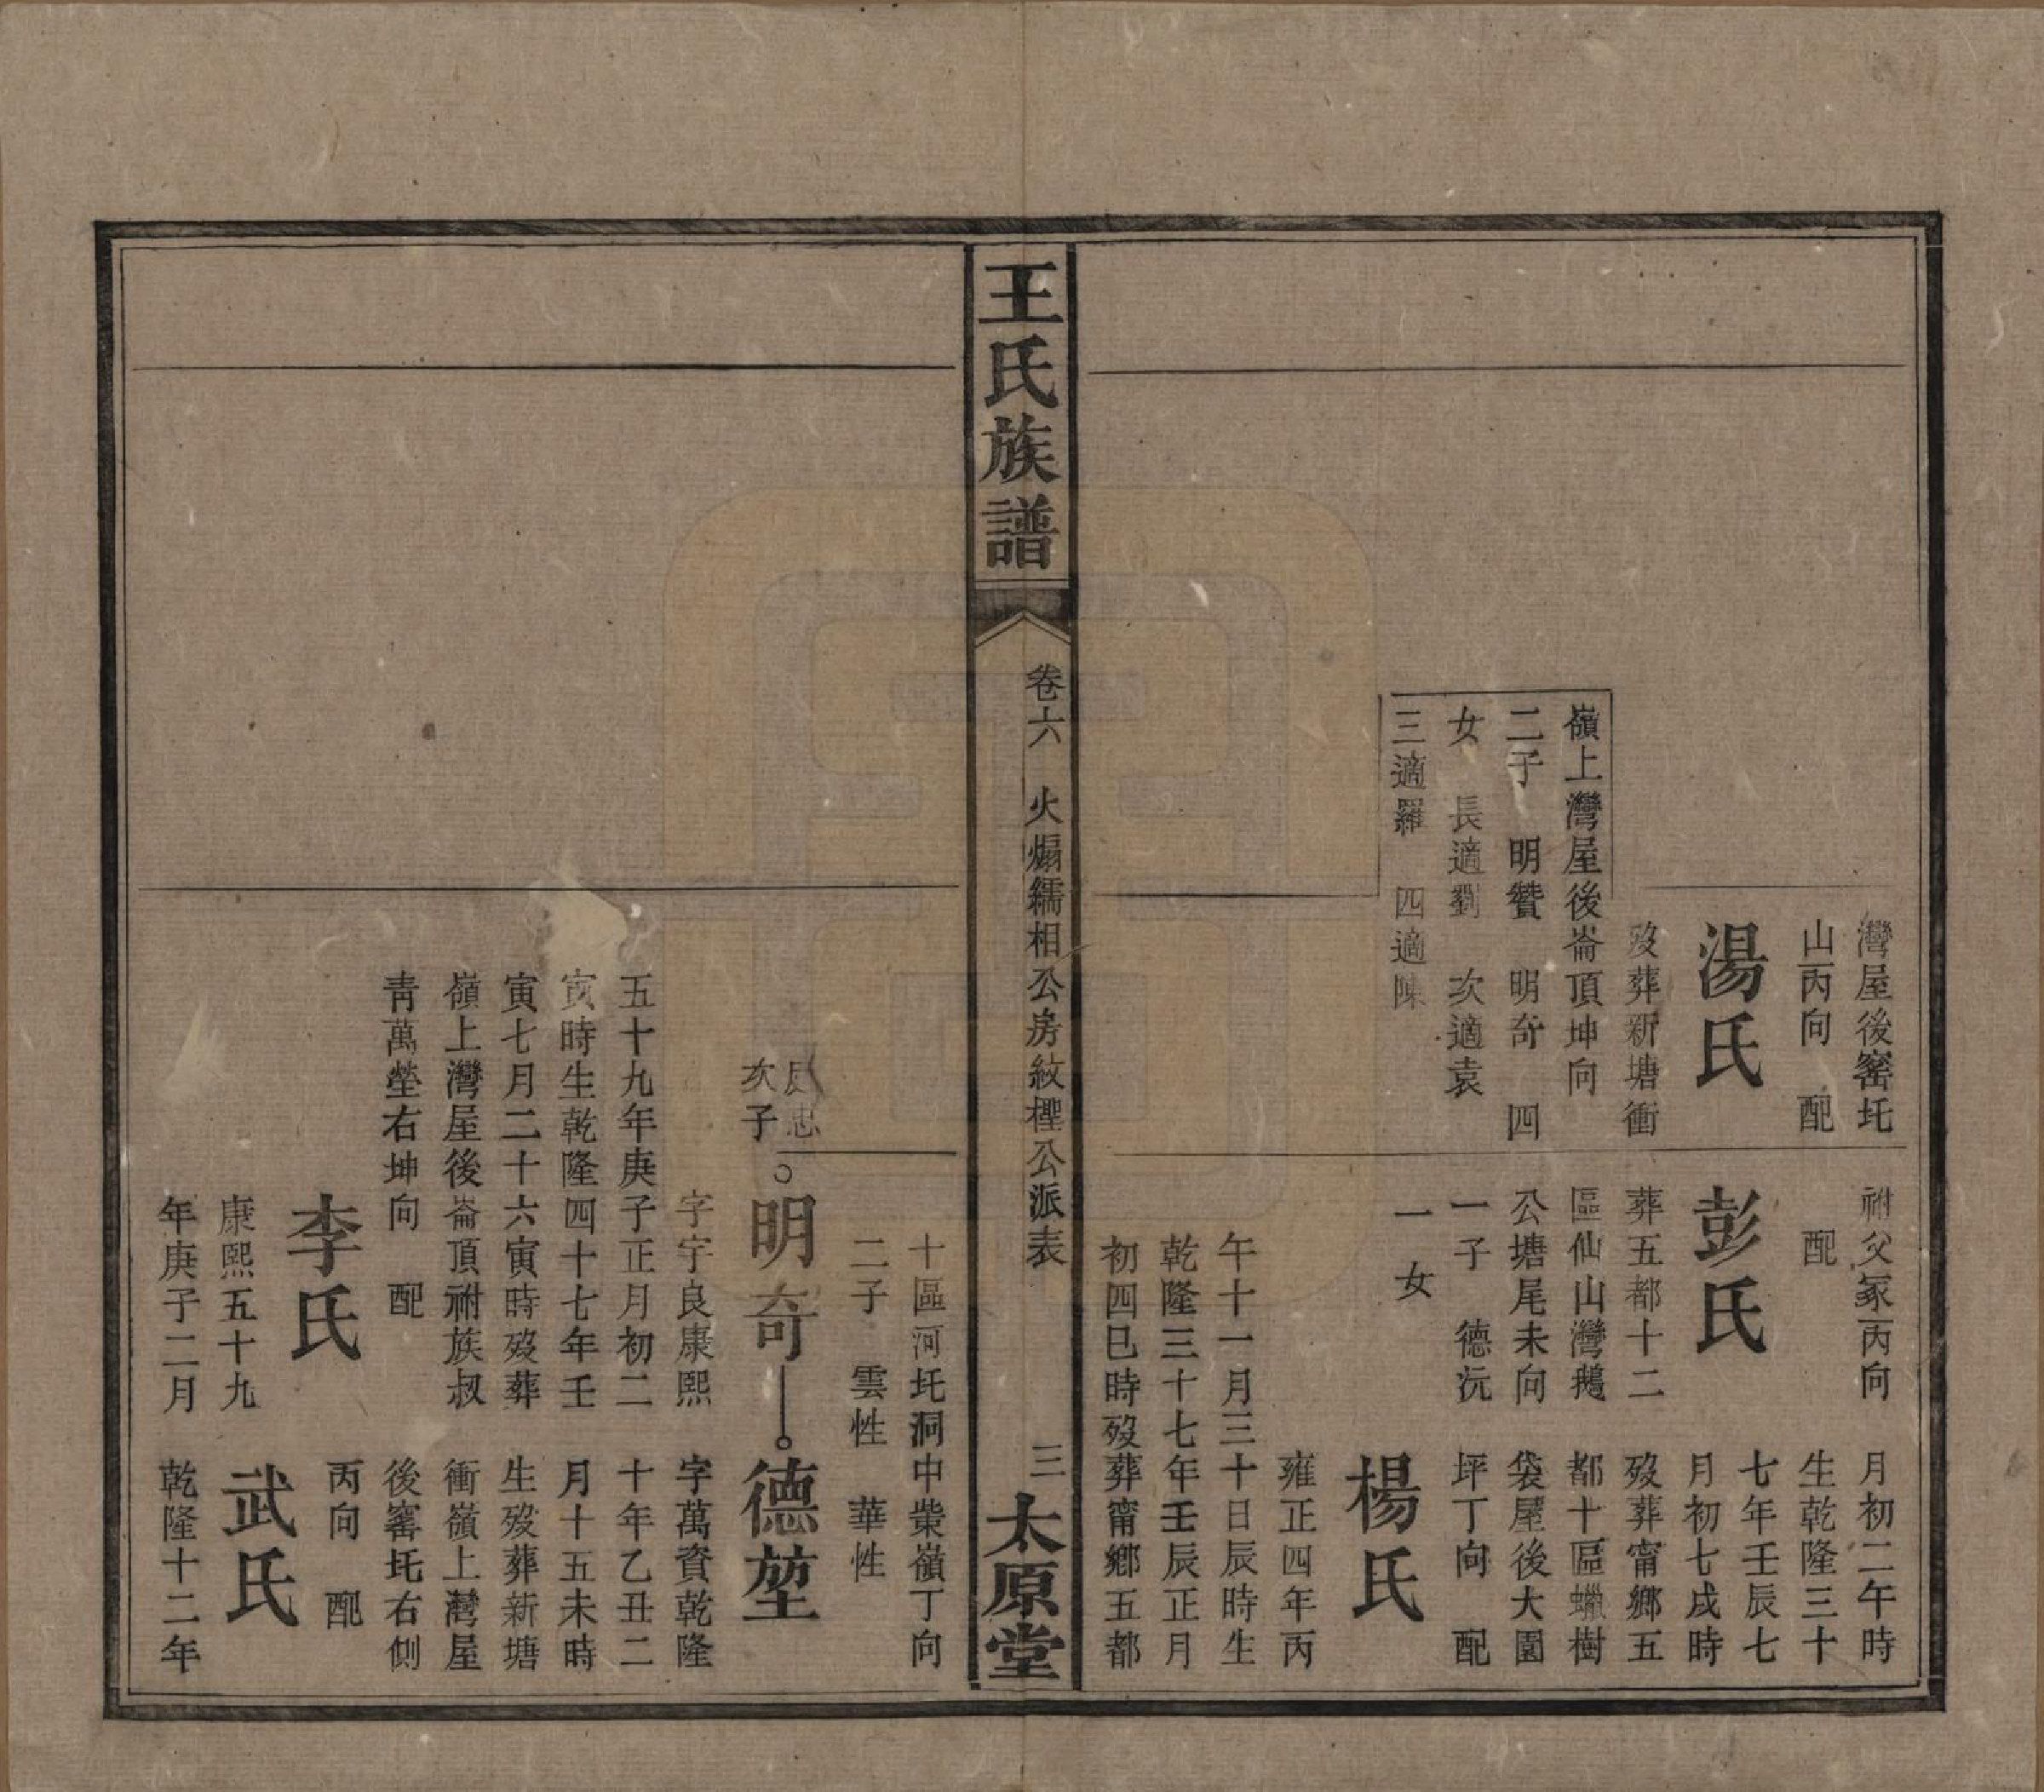 灣屋後窰圫
山丙向 配
湯氏
歿葬新塘衝
嶺上灣屋後崙頂坤向
二子 明贊 明奇 四
女 長適劉 次適袁
三適羅 四適陳
祔父冢丙向
配
彭氏
葬五都十二
區仙山灣鵝
公塘尾未向
一子 德沅
一女
月初二午時
生乾隆三十
七年壬辰七
月初七戌時
歿葬甯鄉五
都十區蠟樹
袋屋後大園
坪丁向 配
楊氏
雍正四年丙
午十一月三十日辰時生
乾隆三十七年壬辰正月
初四巳時歿葬甯鄉五都
王氏族譜
卷六 火煽繻相公房紋檉公派表
三
太原堂
十區河圫洞中柴嶺丁向
二子 雲性 華性
忠
次子
明奇
字宇良康熙
五十九年庚子正月初二
寅時生乾隆四十七年壬
寅七月二十六寅時歿葬
嶺上灣屋後崙頂祔族叔
青萬塋右坤向 配
李氏
康熙五十九
年庚子二月
德堃
字萬資乾隆
十年乙丑二
月十五未時
生歿葬新塘
衝嶺上灣屋
後窰圫右側
丙向 配
武氏
乾隆十二年